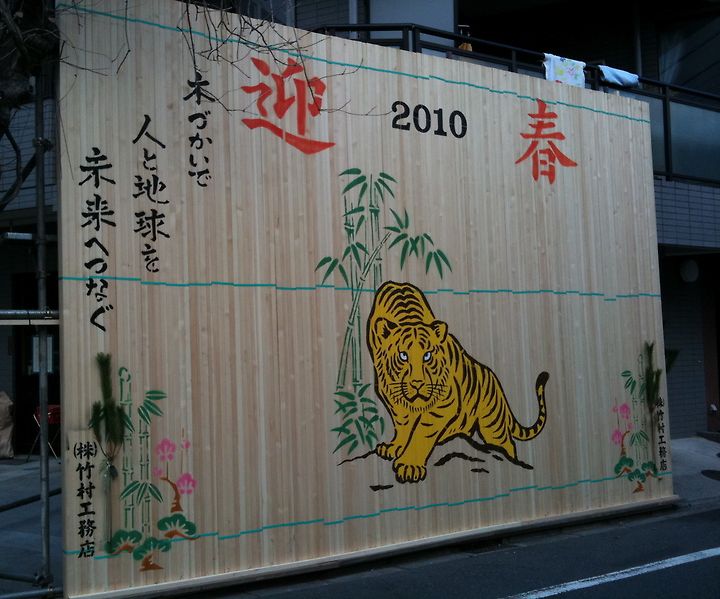 迎 2010 春
木づかいで
人と地球を
未来へつなぐ
㈱竹村工務店
㈱竹村工務店